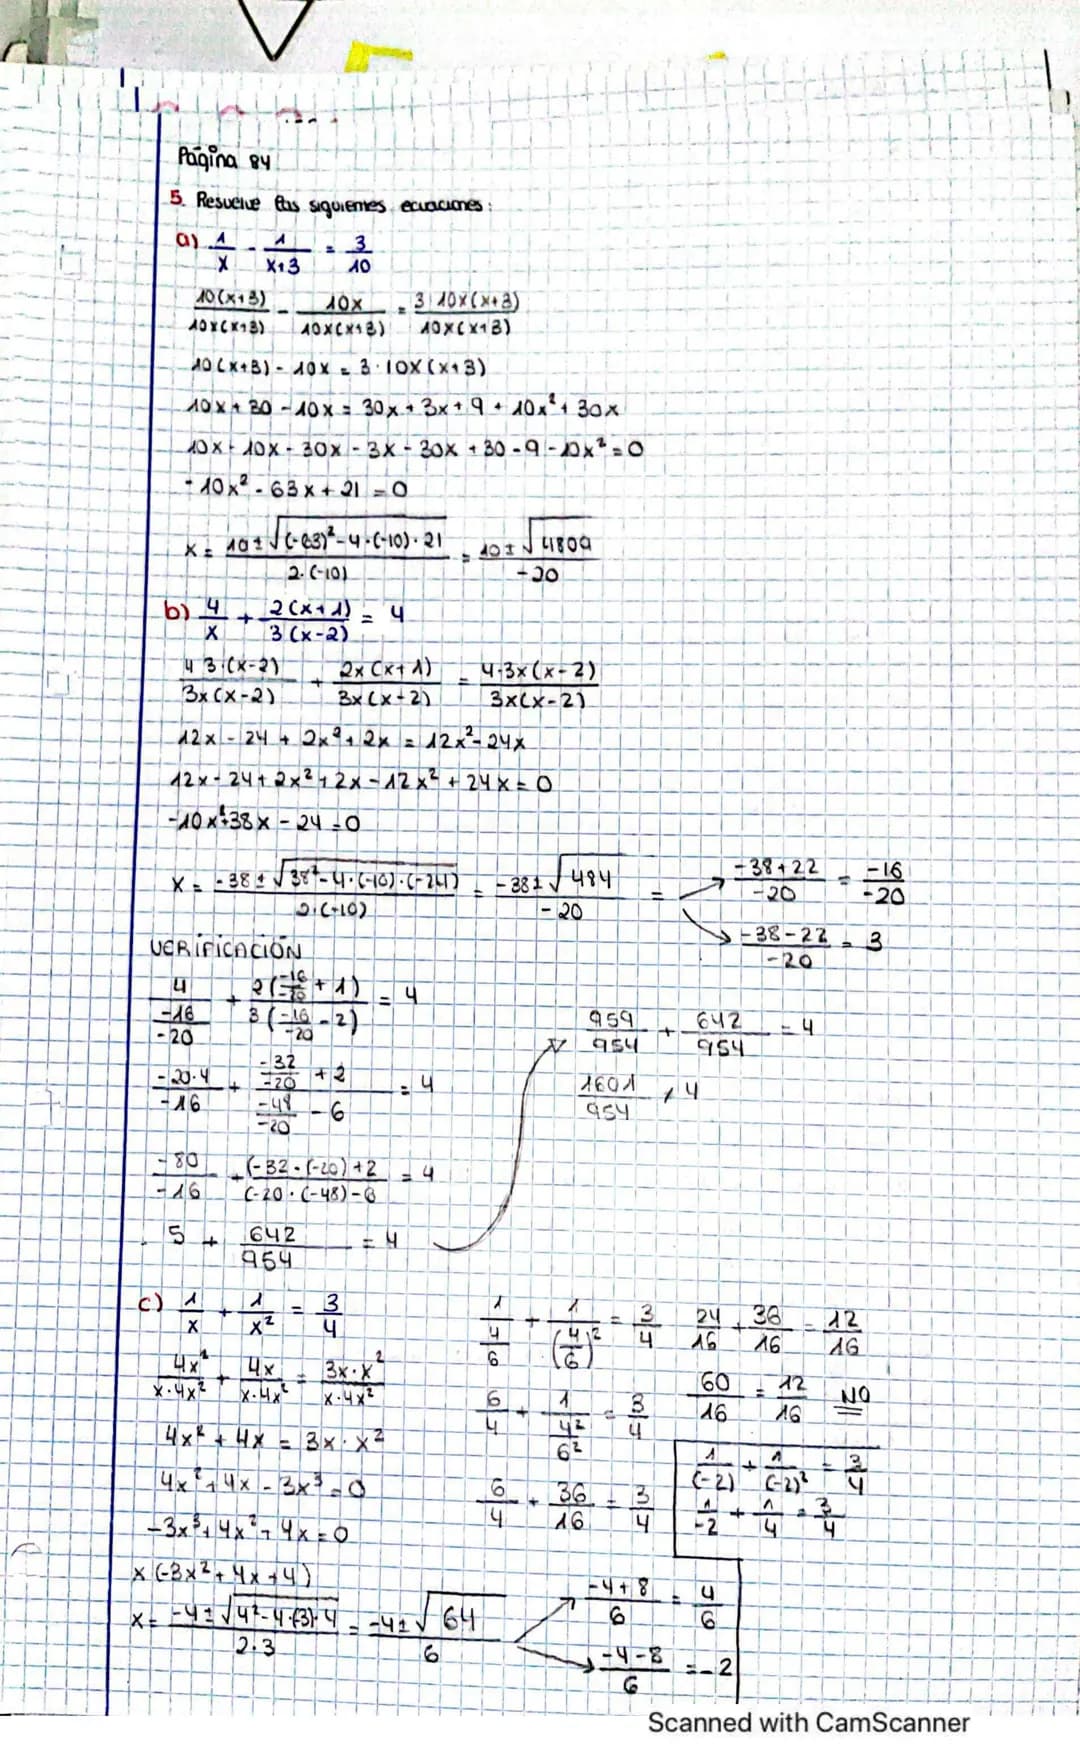 Página 84
5. Resuelve las siguientes ecuaciones:
a) 1/x - 1/x+3 = 3/10
10(x+3)/10x(x+3) - 10x/10x(x+3) = 3·10x(x+3)/10x(x+3)
10(x+3) - 10x = 3·10x(x+3)
10x + 30 - 10x = 30x + 3x + 9 + 10x² + 30x
10x - 10x - 30x - 3x - 30x + 30 - 9 - 10x² = 0
-10x² - 63x + 21 = 0
x = 10 ± √(-63)² - 4·(-10)·21 / 2·(-10) = 10 ± √4809 / -20
b) 4/x + 2(x+1)/3(x-2) = 4
4 3·(x-2)/3x(x-2) + 2x(x+1)/3x(x-2) = 4·3x(x-2)/3x(x-2)
12x - 24 + 2x² + 2x = 12x² - 24x
12x - 24 + 2x² + 2x - 12x² + 24x = 0
-10x² + 38x - 24 = 0
x = -38 ± √38² - 4·(-10)·(-24) / 2·(-10) = -38 ± √484 / -20 =
-38+22/-20 = -16/-20
-38-22/-20 = 3
VERIFICACIÓN
4/(-16/-20) + 2(-16/-20 + 1)/3(-16/-20 - 2) = 4
-20·4/-16 + (-32/-20 + 2)/(-48/-20 - 6) = 4
-80/-16 + (-32·(-20)+2/(-20·(-48)-6 = 4
5 + 642/954 = 4
959/954 + 642/954 = 4
1601/954 ≠ 4
c) 1/x + 1/x² = 3/4
4x²/x·4x² + 4x/x·4x² = 3x·x²/x·4x²
4x² + 4x = 3x·x²
4x² + 4x - 3x³ = 0
-3x³ + 4x² + 4x = 0
x(-3x² + 4x + 4)
x = -4 ± √4² - 4·(-3)·4 / 2·3 = -4 ± √64 / 6
-4+8/6 = 4/6
-4-8/6 = -2
1/(4/6) + 1/(4/6)² = 3/4
6/4 + 1/(4²/6²) = 3/4
6/4 + 36/16 = 3/4
24/16 + 36/16 = 12/16
60/16 = 12/16 NO
1/(-2) + 1/(-2)² = 3/4
1/-2 + 1/4 = 3/4
Scanned with CamScanner